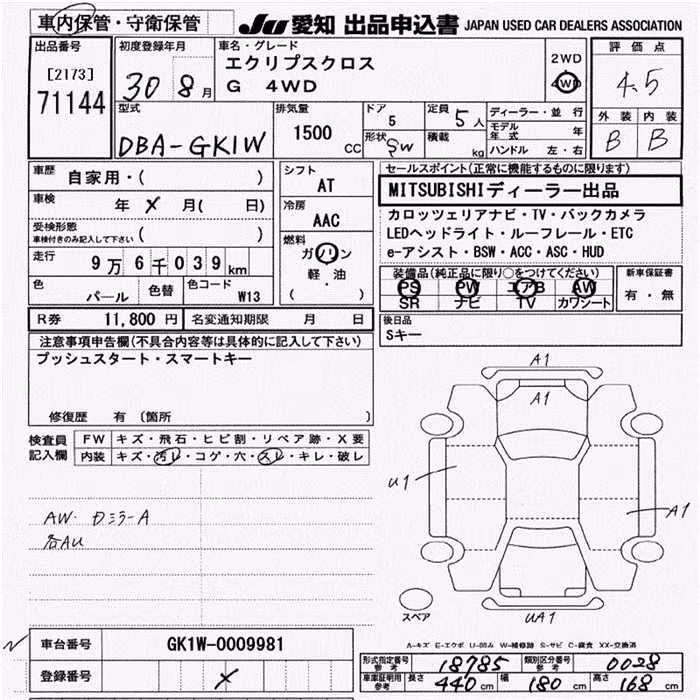 車内保管・守衛保管 JU 愛知 出品申込書 JAPAN USED CAR DEALERS ASSOCIATION
出品番号 [2173] 71144
初度登録年月 30 8 月
車名・グレード エクリプスクロス
G 4WD
2WD
4WD
評価点
4.5
外装 内装
B B
型式 DBA-GK1W
排気量 1500 CC
ドア 5
形状 SW
定員 5 人
積載 kg
ディーラー・並行
モデル年式 年
ハンドル 左・右
車歴 自家用・( )
車検 年 X 月( 日)
受検形態
車検付きのみ記入して下さい ( )
走行 9万6千039 km
色 パール 色替 色コード W13
シフト AT
冷房 AAC
燃料 ガソリン
軽・油
( ・ )
セールスポイント(正常に機能するものに限ります)
MITSUBISHIディーラー出品
カロッツェリアナビ・TV・バックカメラ
LEDヘッドライト・ルーフレール・ETC
e-アシスト・BSW・ACC・ASC・HUD
装備品(純正品に限り○をつけてください)
PS PW エアB AW
SR ナビ TV カワシート
新車保証書
有・無
R券 11,800 円 名変通知期限 月 日
後日品
Sキー
注意事項申告欄(不具合内容等は具体的に記入して下さい)
プッシュスタート・スマートキー
修復歴 有 〔箇所 〕
検査員記入欄
FW キズ・飛石・ヒビ割・リペア跡・X要
内装 キズ・汚レ・コゲ・穴・スレ・キレ・破レ
AW・Dミラ-A
各AU
A1
A1
U1
A1
UA1
スペア
A-キズ E-エクボ U-凹み W-補修跡 S-サビ C-腐食 XX-交換済
車台番号 GK1W-0009981
登録番号 X
形式指定番号 参考 18785 類別区分番号 参考 0028
車庫証明用 参考 長さ 440 cm 幅 180 cm 高さ 168 cm